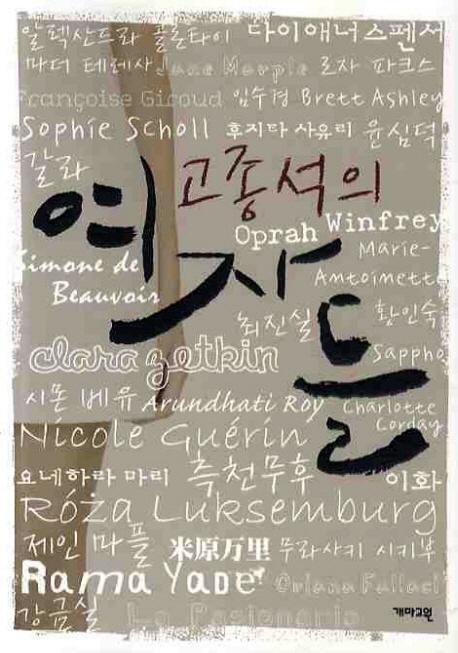 알렉산드라 콜론타이 다이애너 스펜서
마더 테레사 Jane Marple 로자 파크스
Françoise Giroud 임수경 Brett Ashley
Sophie Scholl 후지타 사유리 윤심덕
갈라
고종석의
여자들
Oprah Winfrey
Simone de
Beauvoir
Marie-
Antoinette
최진실 황인숙
clara zetkin
Sappho
시몬 베유 Arundhati Roy Charlotte
Corday
Nicole Guérin
요네하라 마리 측천무후 이화
Róża Luksemburg
제인 마플 米原万里 무라사키 시키부
Rama Yade Oriana Fallaci
강금실 La Pasionaria
개마고원